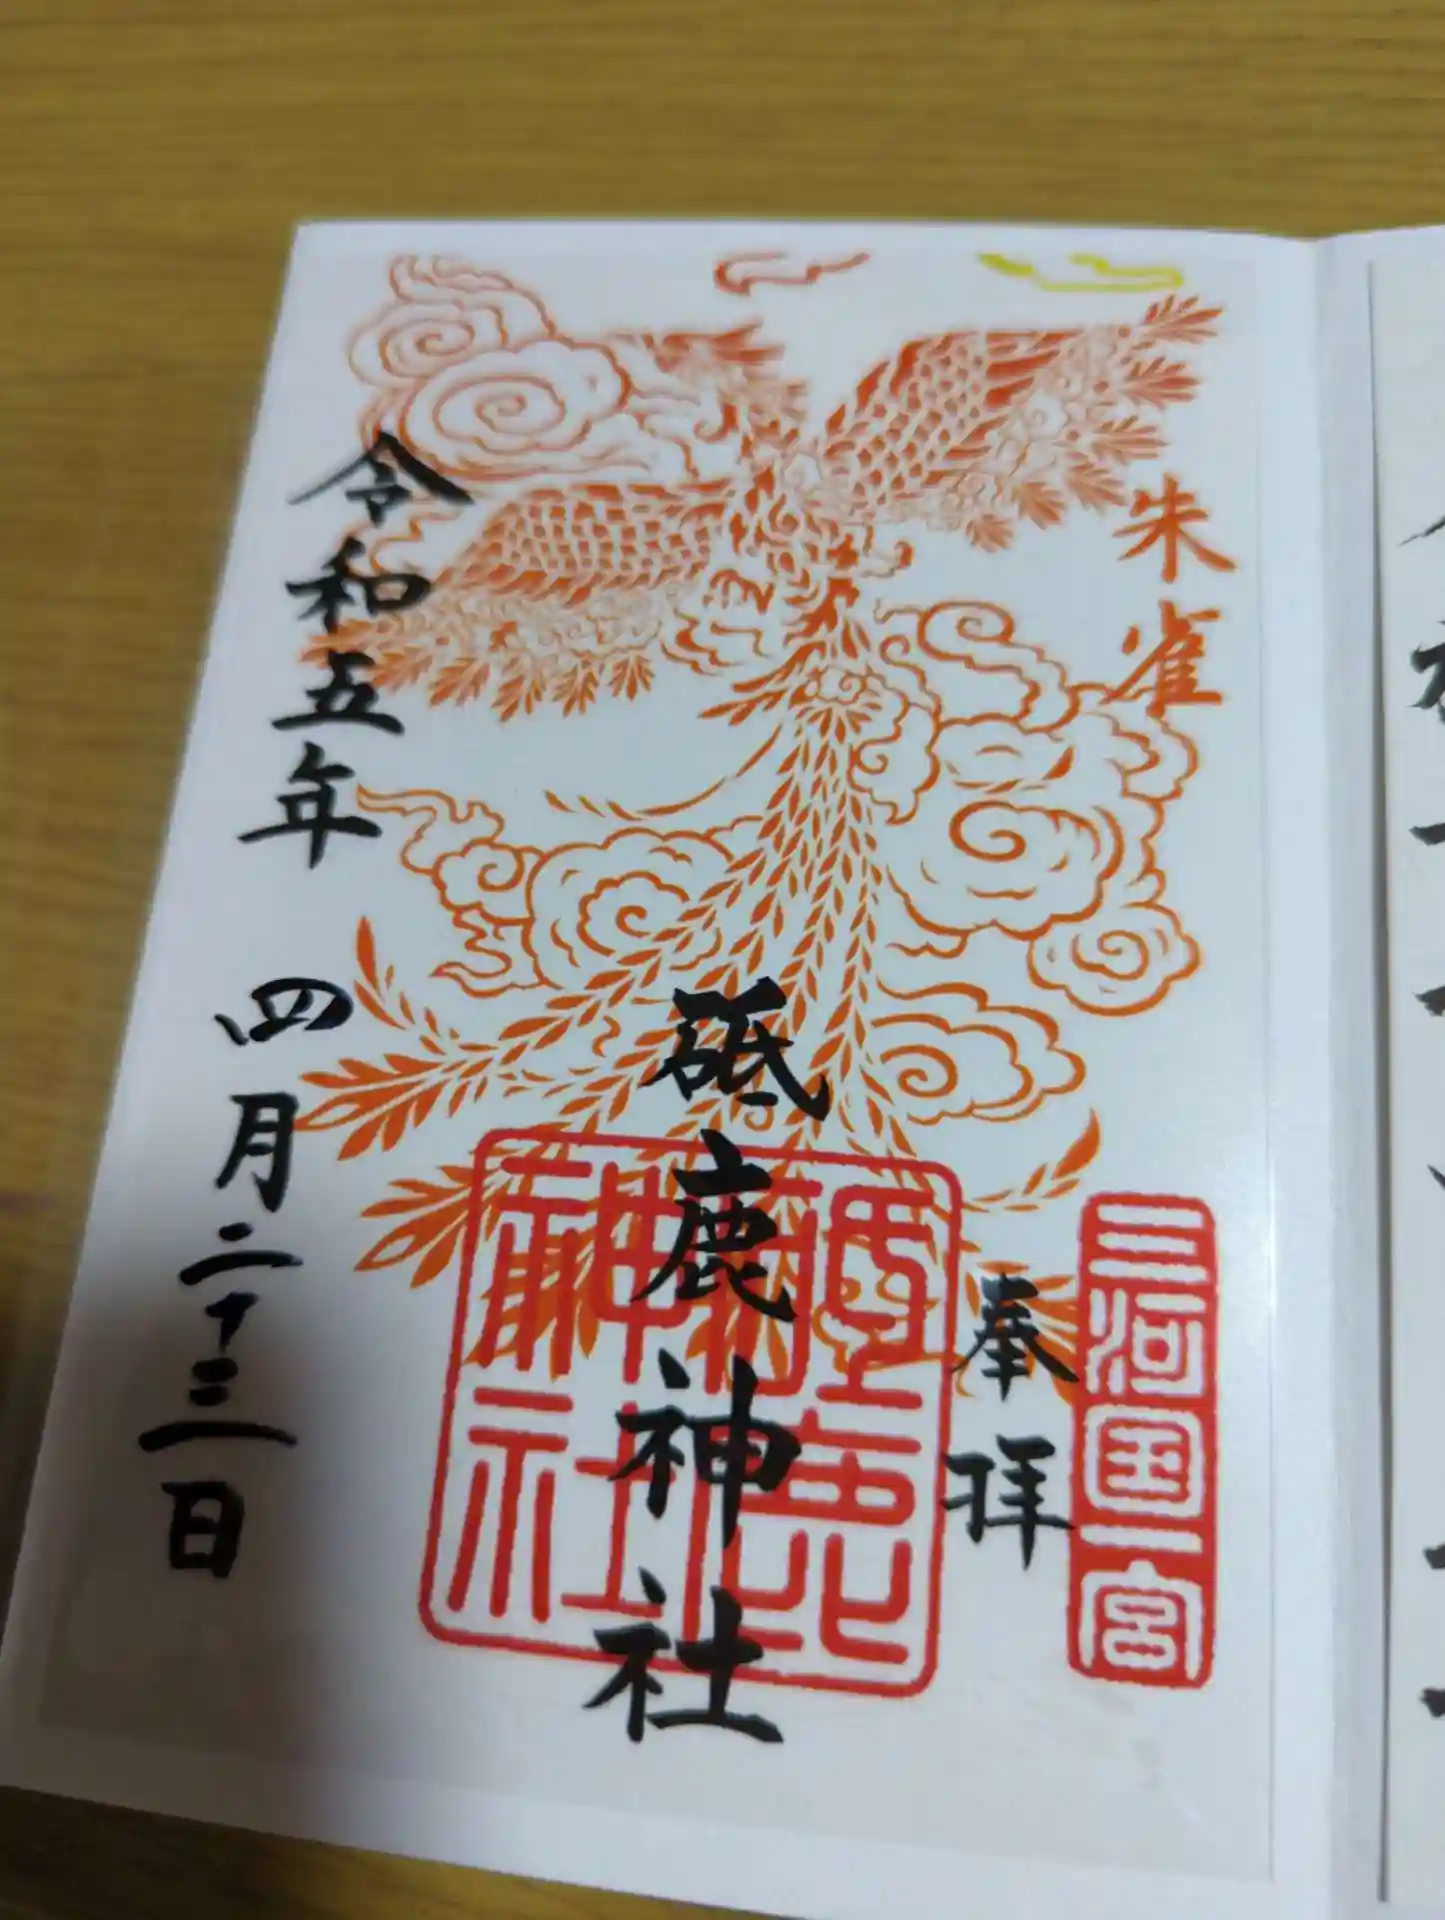 朱雀
三河国一宮
奉拝
砥鹿神社
砥鹿
神社
令和五年 四月二十三日